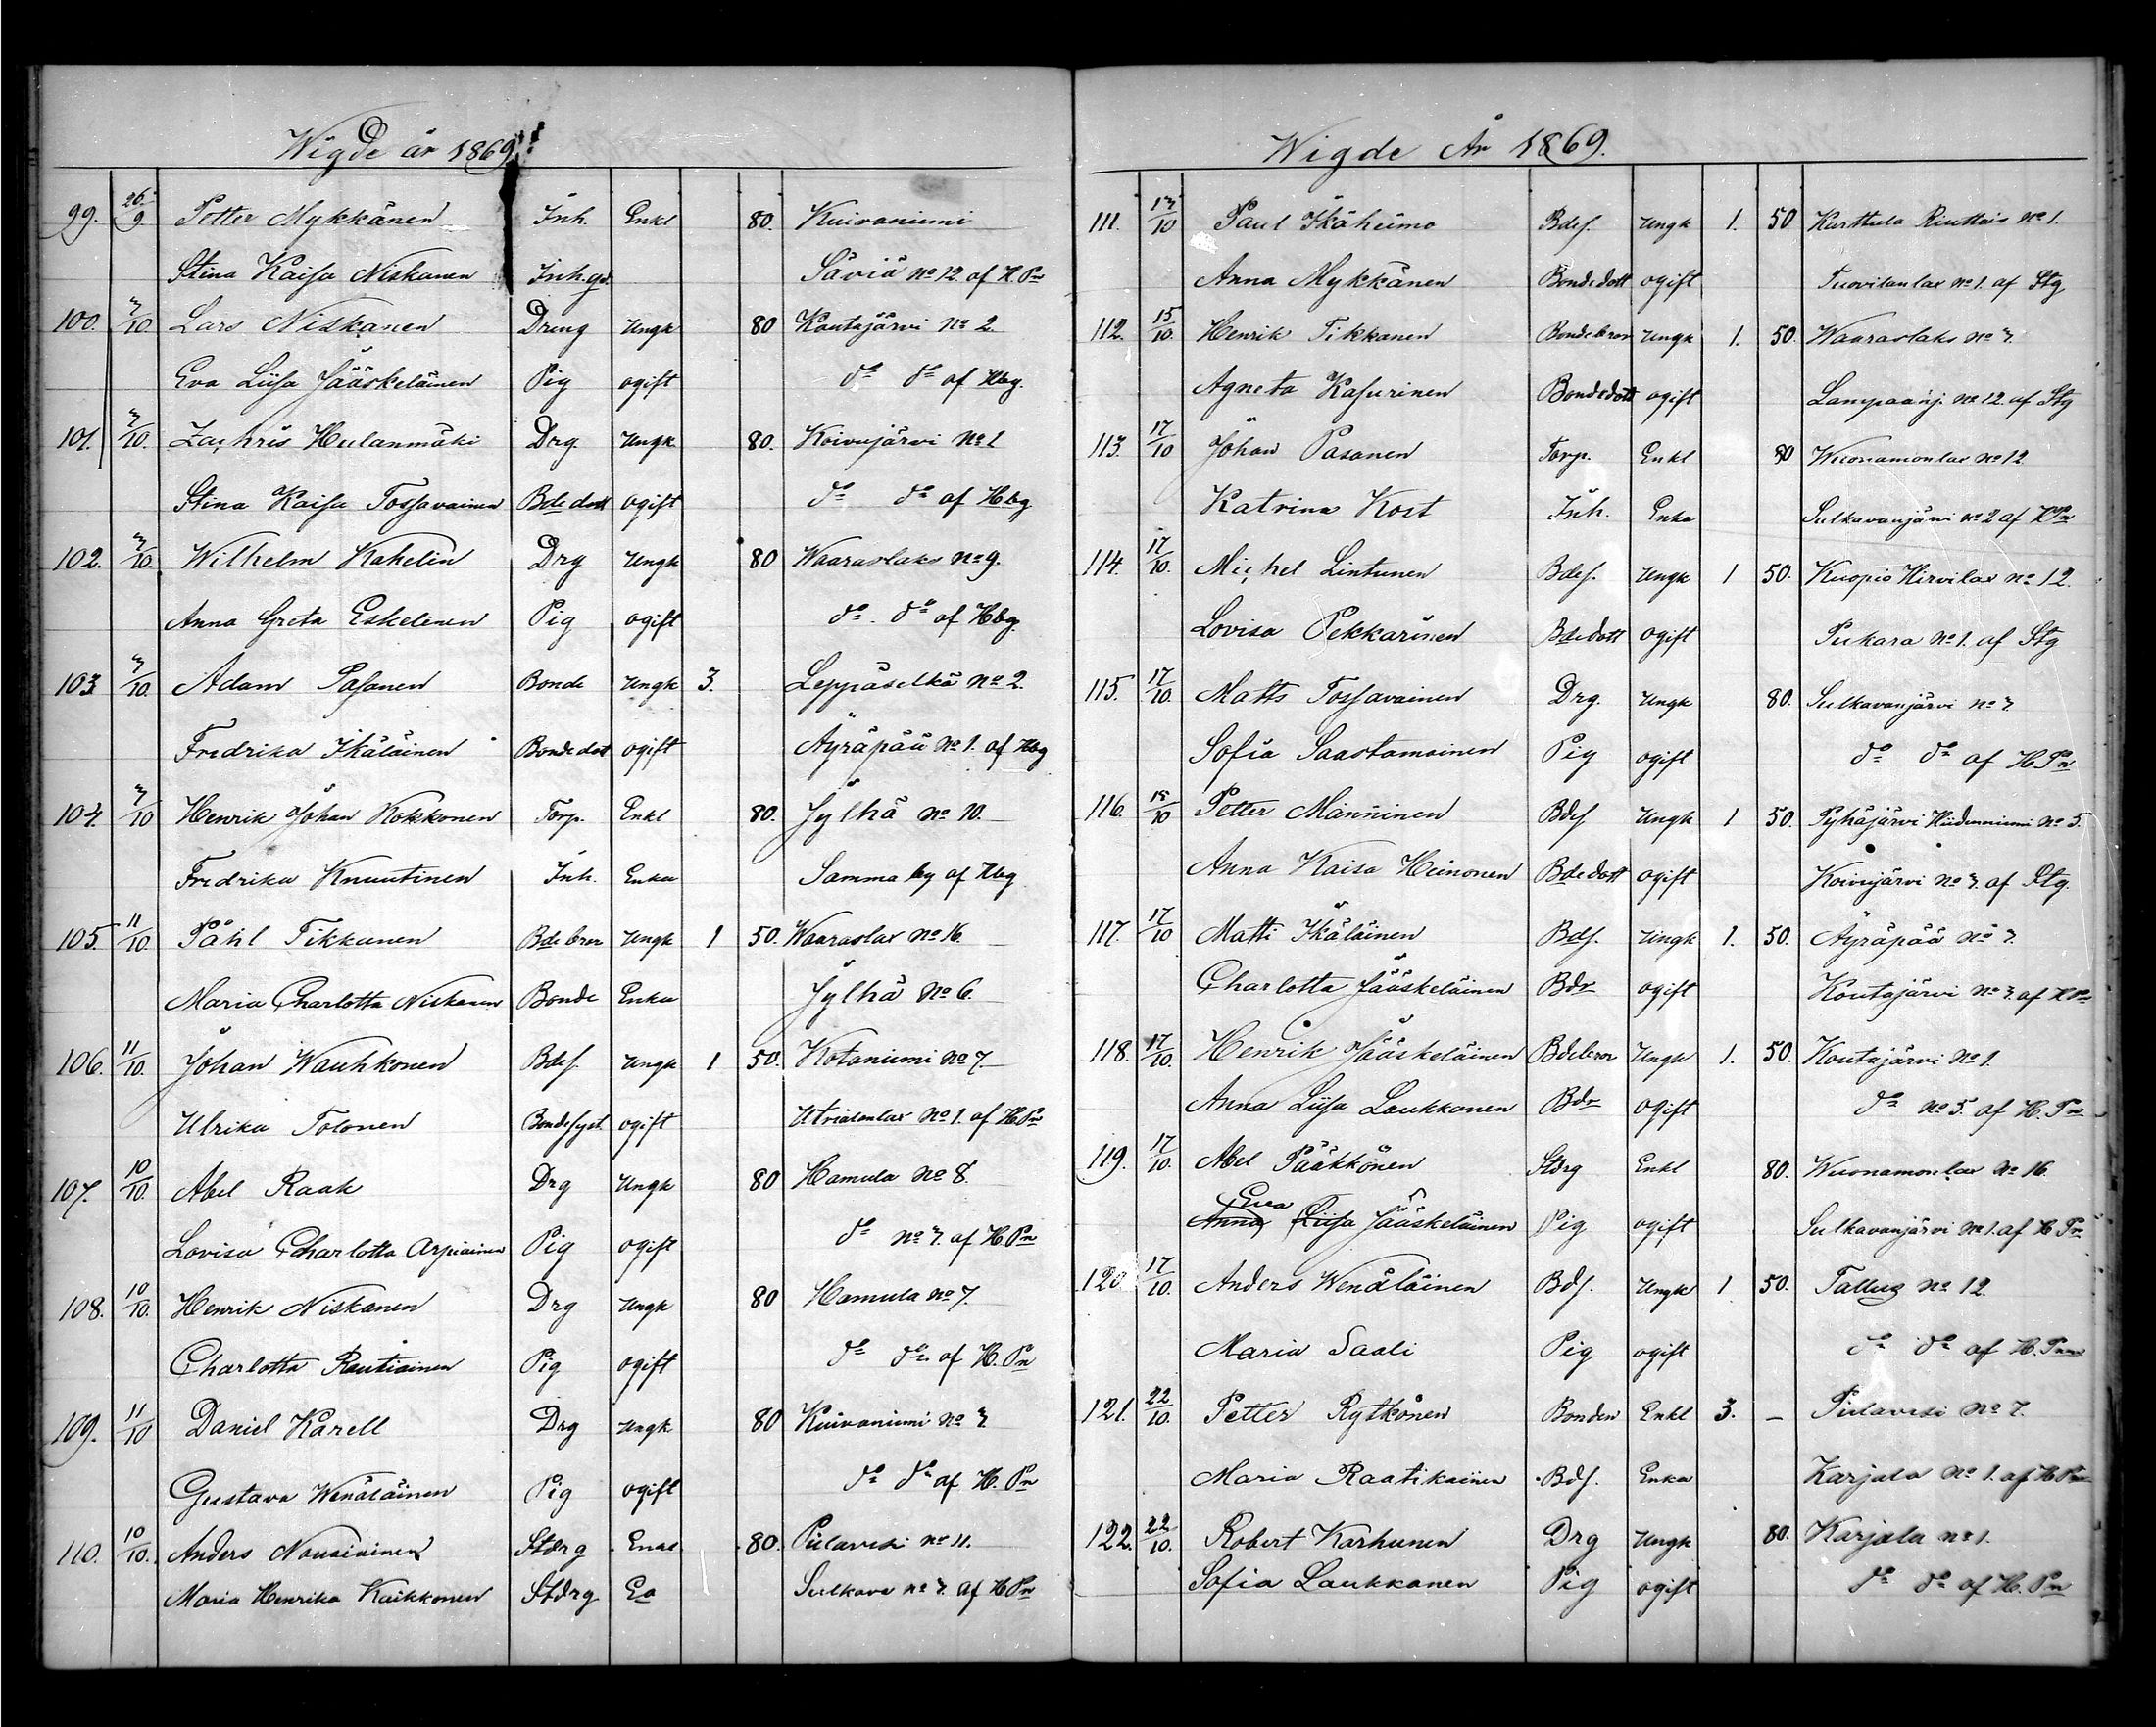 Wigde år 1869.
99. 26/9. Petter Mykkänen Inh. Enkl 80. Kuivaniemi
Stina Kaisa Niskanen Inh.gd. Säviä No 12. af H Pn
100. 3/10. Lars Niskanen Dreng Ungk 80 Koutajärvi No 2.
Eva Liisa Jääskeläinen Pig ogift do do af Hbg.
101. 3/10. Zachris Hulanmäki Drg. Ungk 80. Koivujärvi No 1
Stina Kaisa Tossavainen Bde dott ogift do do af Hbg
102. 3/10. Wilhelm Kahelin Drg Ungk 80 Waaraslaks No 9.
Anna Greta Eskelinen Pig ogift do. do af Hbg.
103 3/10. Adam Pasanen Bonde Ungk 3. Leppäselkä No 2.
Fredrika Ikäläinen Bonde dot ogift Äyräpää No 1. af Hbg
104. 3/10 Henrik Johan Kokkonen Torp. Enkl 80. Jylhä No 10.
Fredrika Knuutinen Inh. Enka Samma by af Hbg
105. 11/10. Påhl Tikkanen Bde bror Ungk 1 50. Waaraslax No 16.
Maria Charlotta Niskanen Bonde Enka Jylhä No 6.
106. 11/10. Johan Wauhkonen Bdes. Ungk 1 50. Kotaniemi No 7.
Ulrika Totonen Bondesyst. ogift Utrialanlax No 1. af H.Pn
107. 10/10. Abel Raak Drg Ungk 80 Hamula No 8.
Lovisa Charlotta Arpiainen Pig ogift do No 7. af H.Pn
108. 10/10. Henrik Niskanen Drg Ungk 80 Hamula No 7.
Charlotta Rautiainen Pig ogift do do. af H. Pn
109. 11/10 Daniel Karell Drg Ungk 80 Kuivaniemi No 3
Gustava Wenäläinen Pig ogift do do af H. Pn
110. 10/10. Anders Nousiainen Stdrg Enas 80. Pielavesi No 11.
Maria Henrika Kaikkonen Stdrg Ea Sulkava No 7. af H Pn
Wigde År 1869.
111. 13/10 Paul Ikäheimo Bdes. Ungk 1. 50 Karttula Riuttais No 1.
Anna Mykkänen Bondedott ogift Tuovilanlax No 1. af Stg
112. 15/10. Henrik Tikkanen Bondebror Ungk 1. 50. Waaraslaks No 7.
Agneta Kasurinen Bondedott ogift Lampaanj. No 12. af Stg
113. 17/10 Johan Pasanen Torp. Enkl 80 Wuonamonlax No 12
Katrina Kost Inh. Enka Sulkavanjärvi No 2 af H Pn
114. 17/10. Michel Lintunen Bdes. Ungk 1 50. Kuopio Hirvilax No 12.
Lovisa Pekkarinen Bdedott ogift Pukara No 1. af Stg
115. 17/10. Matts Tossavainen Drg. Ungk 80. Sulkavanjärvi No 7.
Sofia Saastamoinen Pig ogift do do af H.Pn
116. 18/10 Petter Manninen Bdes Ungk 1 50. Pyhäjärvi Hiidenniemi No 5.
Anna Kaisa Heinonen Bdedott ogift Koivujärvi No 7. af Stg.
117. 17/10 Matti Ikäläinen Bds. Ungk 1. 50. Äyräpää No 7.
Charlotta Jääskeläinen Bdr ogift Koutajärvi No 7. af H Pn
118. 17/10. Henrik Jääskeläinen Bdebror Ungk 1. 50. Koutajärvi No 1.
Anna Liisa Laukkanen Bdr ogift do No 5. af H. Pn
119. 17/10. Abel Pääkkönen Stdrg Enkl 80. Wuonamonlax No 16
Anna Eva Liisa Jääskeläinen Pig ogift Sulkavanjärvi No 1. af H Pn
120 17/10. Anders Wenäläinen Bds. Ungk 1 50. Tallus No 12.
Maria Saali Pig ogift do do af H.
121. 22/10. Petter Rytkönen Bonden Enkl 3. – Pielavesi No 7.
Maria Raatikainen Bds. Enka Karjala No 1. af H Pn
122. 22/10. Robert Karhunen Drg Ungk 80. Karjala No 1.
Sofia Laukkanen Pig ogift do do af H. Pn